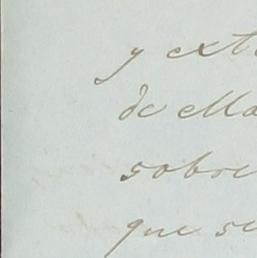 y ext
de ella
sobre
que se